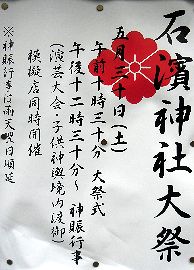 石濱神社大祭
五月三十日(土)
午前十時三十分 大祭式
午後十二時三十分〜 神賑行事
(演芸大会・子供神輿境内渡御)
模擬店同時開催
※神賑行事は雨天翌日順延